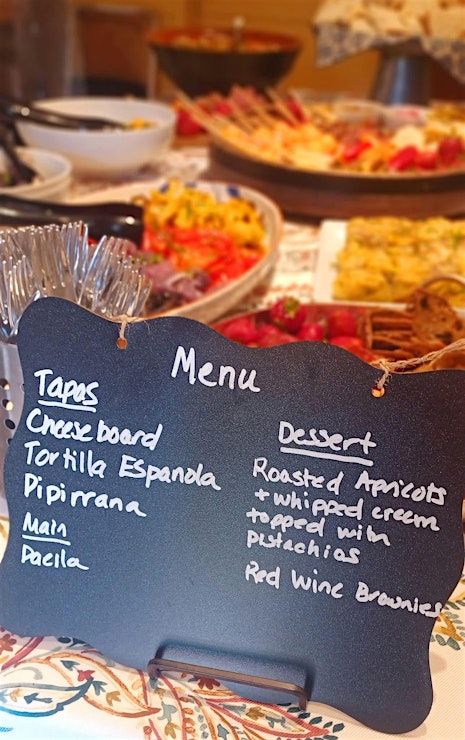 Menu
Tapas
Cheese board
Tortilla Espanola
Pipirrana
Main
Paella
Dessert
Roasted Apricots
+ whipped cream
topped with
pistachios
Red Wine Brownies